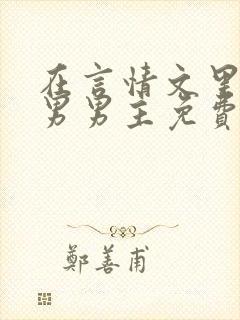 在言情文里
男男主免費
鄭善甫